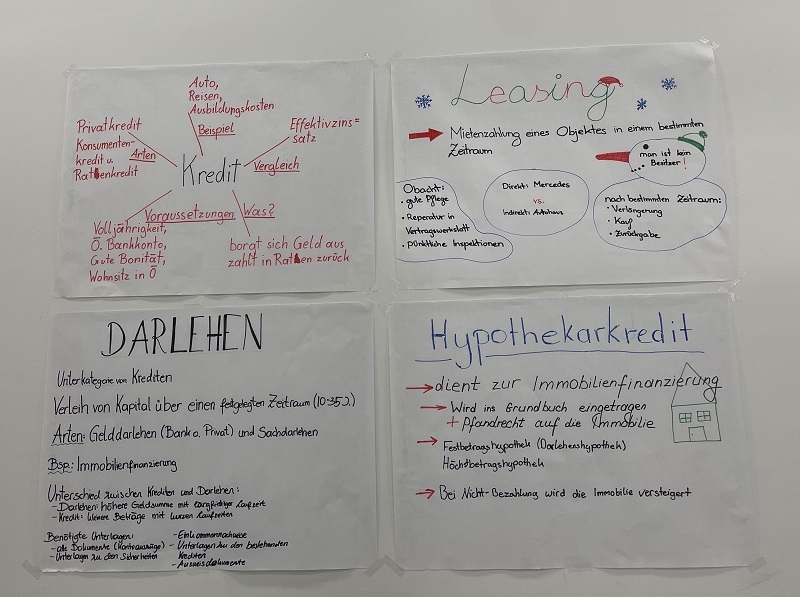 Auto,
Reisen,
Ausbildungskosten
Beispiel
Privatkredit
Konsumenten-
kredit u.
Ratenkredit
Arten
Effektivzins=
satz
Vergleich
Kredit
Voraussetzungen
Volljährigkeit,
Ö. Bankkonto,
Gute Bonität,
Wohnsitz in Ö
Was?
borgt sich Geld aus
zahlt in Raten zurück
Leasing
Mietenzahlung eines Objektes in einem bestimmten
Zeitraum
man ist kein
Besitzer!
Obacht:
• gute Pflege
• Reperatur in
Vertragswerkstatt
• pünktliche Inspektionen
Direkt: Mercedes
vs.
Indirekt: Autohaus
nach bestimmten Zeitraum:
• Verlängerung
• Kauf
• Zurückgabe
DARLEHEN
Unterkategorie von Krediten
Verleih von Kapital über einen festgelegten Zeitraum (10-35J.)
Arten: Gelddarlehen (Bank o. Privat) und Sachdarlehen
Bsp.: Immobilienfinanzierung
Unterschied zwischen Krediten und Darlehen:
- Darlehen: höhere Geldsumme mit langfristiger Laufzeit
- Kredit: kleinere Beträge mit kurzen Laufzeiten
Benötigte Unterlagen:
- alle Dokumente (Kontoauszüge)
- Unterlagen zu den Sicherheiten
- Einkommensnachweise
- Unterlagen zu den bestehenden
Krediten
- Ausweisdokumente
Hypothekarkredit
dient zur Immobilienfinanzierung
Wird ins Grundbuch eingetragen
+ Pfandrecht auf die Immobilie
Festbetragshypothek (Darlehenshypothek)
Höchstbetragshypothek
Bei Nicht-Bezahlung wird die Immobilie versteigert